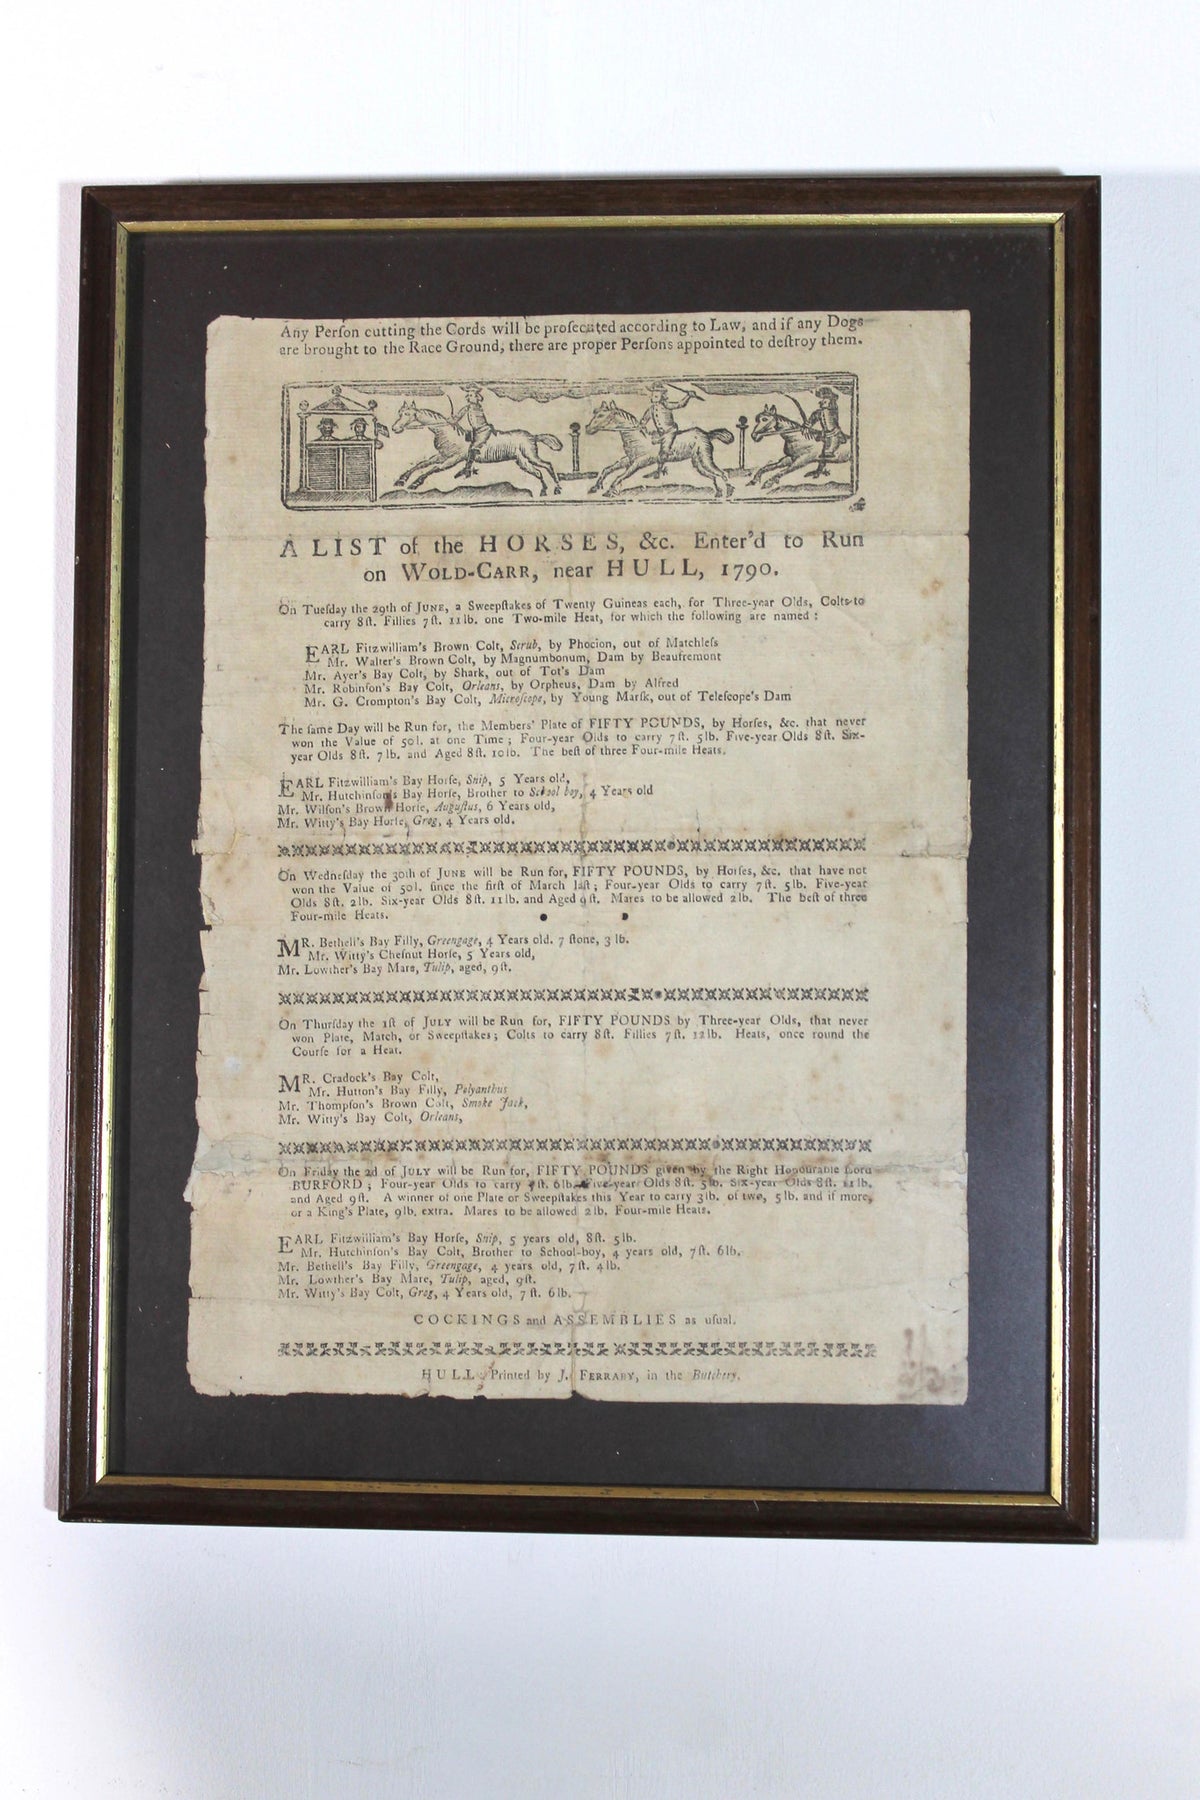 Any Perſon cutting the Cords will be proſecuted according to Law, and if any Dogs
are brought to the Race Ground, there are proper Perſons appointed to deſtroy them.
A LIST of the HORSES, &c. Enter'd to Run
on WOLD-CARR, near HULL, 1790.
On Tueſday the 29th of JUNE, a Sweepſtakes of Twenty Guineas each, for Three-year Olds, Colts to
carry 8ſt. Fillies 7ſt. 11lb. one Two-mile Heat, for which the following are named:
EARL Fitzwilliam's Brown Colt, Scrub, by Phocion, out of Matchleſs
Mr. Walter's Brown Colt, by Magnumbonum, Dam by Beaufremont
Mr. Ayer's Bay Colt, by Shark, out of Tot's Dam
Mr. Robinſon's Bay Colt, Orleans, by Orpheus, Dam by Alfred
Mr. G. Crompton's Bay Colt, Microſcope, by Young Marſk, out of Teleſcope's Dam
The ſame Day will be Run for, the Members' Plate of FIFTY POUNDS, by Horſes, &c. that never
won the Value of 50l. at one Time; Four-year Olds to carry 7ſt. 5lb. Five-year Olds 8ſt. Six-
year Olds 8ſt. 7lb. and Aged 8ſt. 10lb. The beſt of three Four-mile Heats.
EARL Fitzwilliam's Bay Horſe, Snip, 5 Years old,
Mr. Hutchinſon's Bay Horſe, Brother to School boy, 4 Years old
Mr. Wilſon's Brown Horſe, Auguſtus, 6 Years old,
Mr. Witty's Bay Horſe, Grog, 4 Years old.
On Wedneſday the 30th of JUNE will be Run for, FIFTY POUNDS, by Horſes, &c. that have not
won the Value of 50l. ſince the firſt of March laſt; Four-year Olds to carry 7ſt. 5lb. Five-year
Olds 8ſt. 2lb. Six-year Olds 8ſt. 11lb. and Aged 9ſt. Mares to be allowed 2lb. The beſt of three
Four-mile Heats.
MR. Bethell's Bay Filly, Greengage, 4 Years old. 7 ſtone, 3 lb.
Mr. Witty's Cheſnut Horſe, 5 Years old,
Mr. Lowther's Bay Mare, Tulip, aged, 9ſt.
On Thurſday the 1ſt of JULY will be Run for, FIFTY POUNDS by Three-year Olds, that never
won Plate, Match, or Sweepſtakes; Colts to carry 8ſt. Fillies 7ſt. 12lb. Heats, once round the
Courſe for a Heat.
MR. Cradock's Bay Colt,
Mr. Hutton's Bay Filly, Polyanthus
Mr. Thompſon's Brown Colt, Smoke Jack,
Mr. Witty's Bay Colt, Orleans,
On Friday the 2d of JULY will be Run for, FIFTY POUNDS given by the Right Honourable Lord
BURFORD; Four-year Olds to carry 7ſt. 6lb. Five-year Olds 8ſt. 5lb. Six-year Olds 8ſt. 11lb.
and Aged 9ſt. A winner of one Plate or Sweepſtakes this Year to carry 3lb. of two, 5lb. and if more,
or a King's Plate, 9lb. extra. Mares to be allowed 2lb. Four-mile Heats.
EARL Fitzwilliam's Bay Horſe, Snip, 5 years old, 8ſt. 5lb.
Mr. Hutchinſon's Bay Colt, Brother to School-boy, 4 years old, 7ſt. 6lb.
Mr. Bethell's Bay Filly, Greengage, 4 years old, 7ſt. 4lb.
Mr. Lowther's Bay Mare, Tulip, aged, 9ſt.
Mr. Witty's Bay Colt, Grog, 4 Years old, 7ſt. 6lb.
COCKINGS and ASSEMBLIES as uſual.
HULL: Printed by J. FERRABY, in the Butchery.